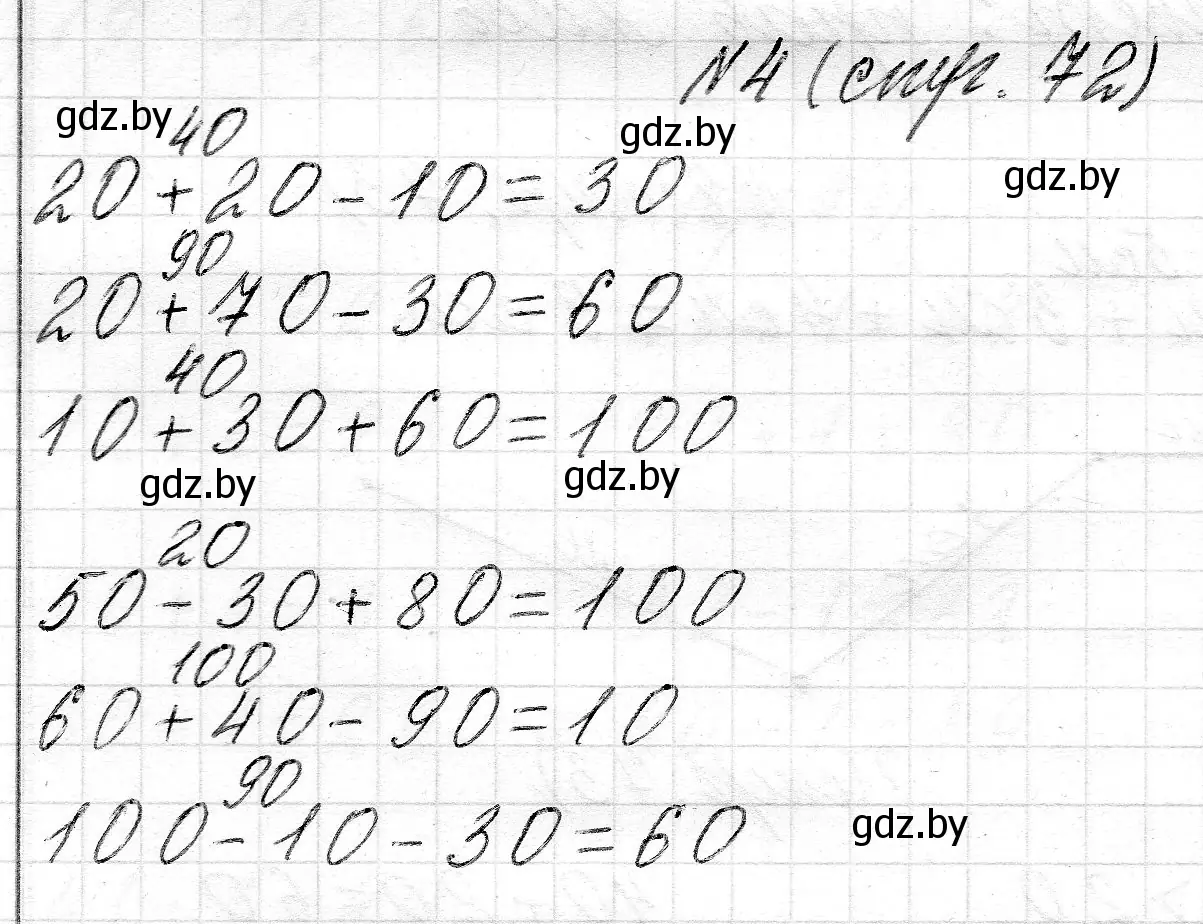 №4 (стр. 72)
gdz.by 40 gdz.by
20 + 20 - 10 = 30 gdz.by
90
20 + 70 - 30 = 60
40
10 + 30 + 60 = 100
gdz.by gdz.by
20
50 - 30 + 80 = 100
100
60 + 40 - 90 = 10
90
100 - 10 - 30 = 60 gdz.by